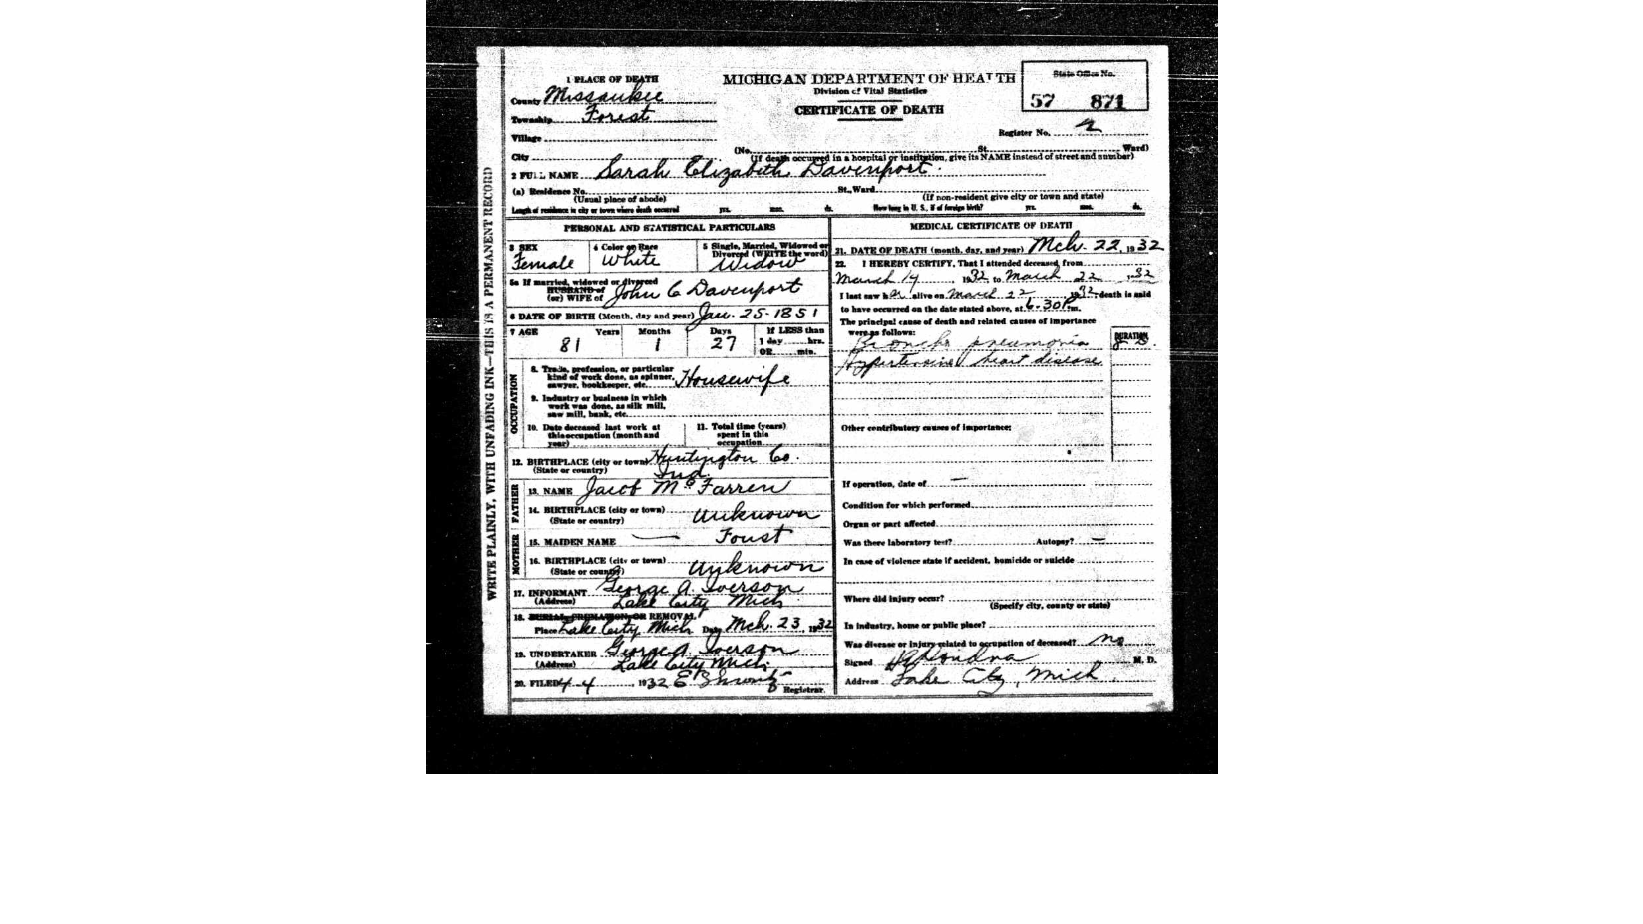 WRITE PLAINLY, WITH UNFADING INK—THIS IS A PERMANENT RECORD
1 PLACE OF DEATH
County Missaukee
Township Forest
Village
City
MICHIGAN DEPARTMENT OF HEALTH
Division of Vital Statistics
CERTIFICATE OF DEATH
State Office No.
57 871
Register No. 2
(No. St. Ward)
(If death occurred in a hospital or institution, give its NAME instead of street and number)
2 FULL NAME Sarah Elizabeth Davenport
(a) Residence No. St., Ward.
(Usual place of abode) (If non-resident give city or town and state)
Length of residence in city or town where death occurred yrs. mos. ds. How long in U. S., if of foreign birth? yrs. mos. ds.
PERSONAL AND STATISTICAL PARTICULARS
3 SEX
Female
4 Color or Race
White
5 Single, Married, Widowed or
Divorced (WRITE the word)
Widow
5a If married, widowed or divorced
HUSBAND of
(or) WIFE of John C Davenport
6 DATE OF BIRTH (Month, day and year) Jan. 25-1851
7 AGE Years Months Days If LESS than
81 1 27 1 day hrs.
OR min.
OCCUPATION
8. Trade, profession, or particular
kind of work done, as spinner,
sawyer, bookkeeper, etc. Housewife
9. Industry or business in which
work was done, as silk mill,
saw mill, bank, etc.
10. Date deceased last work at
this occupation (month and
year)
11. Total time (years)
spent in this
occupation
12. BIRTHPLACE (city or town) Huntington Co.
(State or country) Ind.
FATHER
13. NAME Jacob McFarren
14. BIRTHPLACE (city or town) Unknown
(State or country)
MOTHER
15. MAIDEN NAME — Foust
16. BIRTHPLACE (city or town) Unknown
(State or country)
17. INFORMANT George A. Iverson
(Address) Lake City Mich.
18. BURIAL, CREMATION OR REMOVAL
Place Lake City Mich Date Mch. 23, 1932
19. UNDERTAKER George A. Iverson
(Address) Lake City Mich.
20. FILED 4-4, 1932 Registrar.
MEDICAL CERTIFICATE OF DEATH
21. DATE OF DEATH (month, day, and year) Mch. 22, 1932
22. I HEREBY CERTIFY, That I attended deceased from
March 14, 1932 to March 22, 32
I last saw her alive on March 22 1932, death is said
to have occurred on the date stated above, at 6.30 P. m.
The principal cause of death and related causes of importance
were as follows: DURATION
Broncho pneumonia
Hypertensive heart disease
Other contributory causes of importance:
If operation, date of —
Condition for which performed
Organ or part affected
Was there laboratory test? Autopsy? —
In case of violence state if accident, homicide or suicide
Where did injury occur?
(Specify city, county or state)
In industry, home or public place?
Was disease or injury related to occupation of deceased? no
Signed M. D.
Address Lake City, Mich.